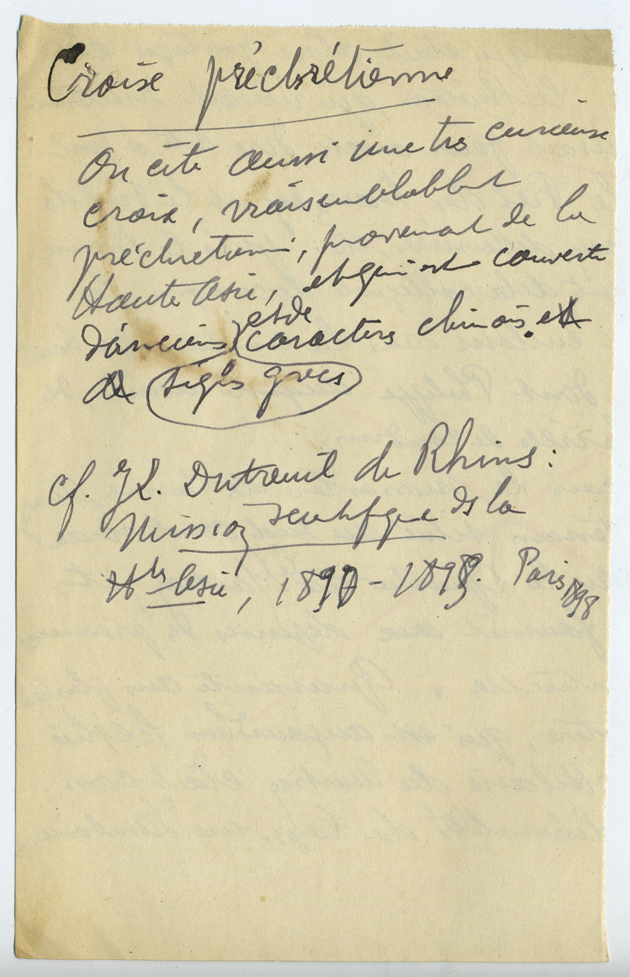 Croix préchrétienne
On cite aussi une tres curieuse
croix, vraisemblablt
préchretienn, provenat de la
Haute Asie, et qui est couverte
d'anciens et de caracters chinois. et
de sigles grecs
cf. J L. Dutreuil de Rhins:
Mission scientifique ds la
Hte Asie, 1890-1895. Paris 1898